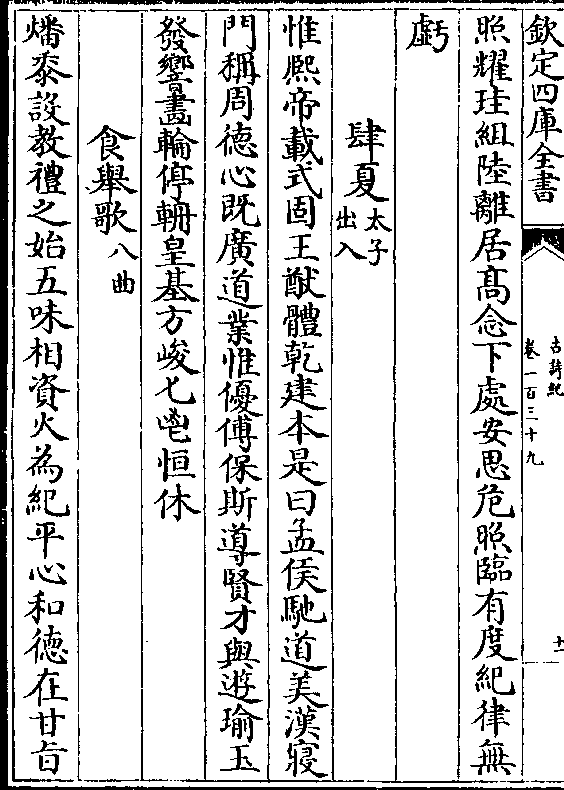 欽定四庫全書
古詩紀
卷一百三十九
十一
照耀珪組陸離居髙念下處安思危照臨有度紀律無
虧
肆夏太子出入
惟熈帝載式固王猷體乾建本是曰孟侯馳道美漢寢
門稱周德心既廣道業惟優傅保斯導賢才與遊瑜玉
發響畫輪停輈皇基方峻七鬯恒休
食舉歌八曲
燔黍設教禮之始五味相資火為紀平心和德在甘㫖